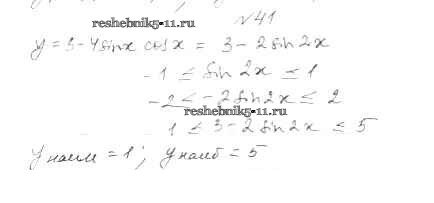 №41
reshebnik5-11.ru
y = 3 - 4sinx cosx = 3 - 2sin2x
-1 ≤ sin 2x ≤ 1
-2 ≤ -2sin2x ≤ 2
reshebnik5-11.ru
1 ≤ 3 - 2sin2x ≤ 5
y наим = 1; y наиб = 5